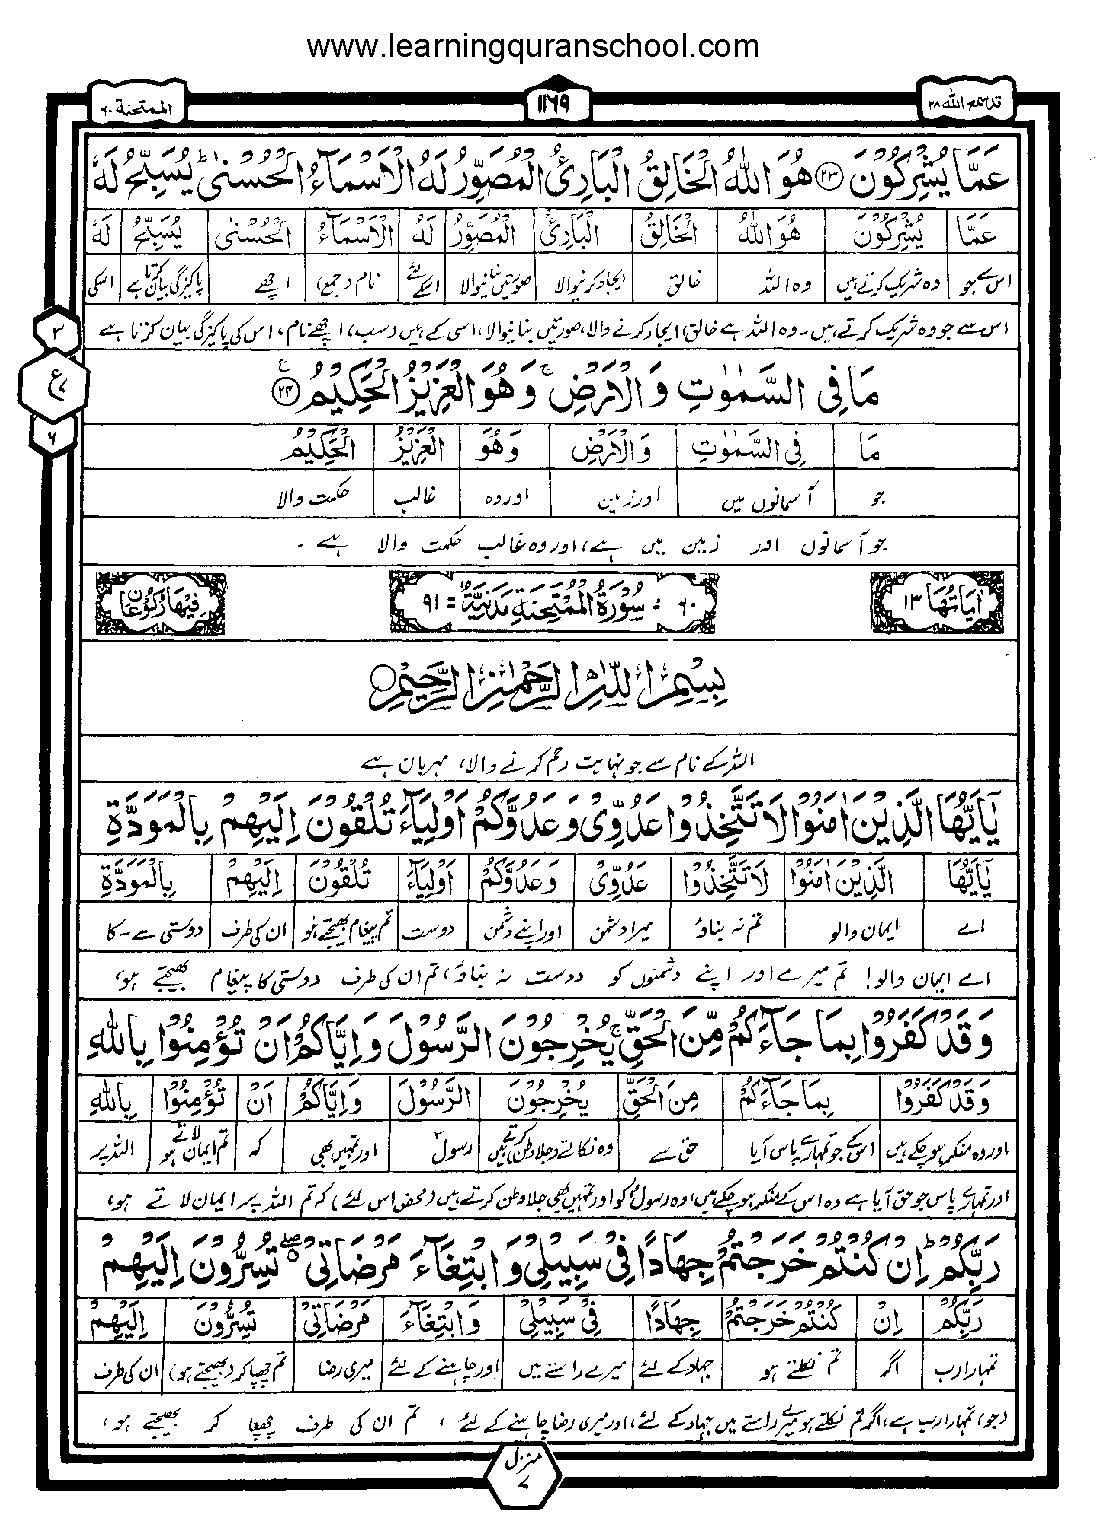 www.learningquranschool.com
الممتحنة ٦٠
١١٦٩
قد سمع الله ٢٨
عَمَّا يُشْرِكُوْنَ ﴿٢٣﴾ هُوَ اللّٰهُ الْخَالِقُ الْبَارِئُ الْمُصَوِّرُ لَهُ الْاَسْمَآءُ الْحُسْنٰى ؕ يُسَبِّحُ لَهٗ
عَمَّا يُشْرِكُوْنَ هُوَ اللّٰهُ الْخَالِقُ الْبَارِئُ الْمُصَوِّرُ لَهُ الْاَسْمَآءُ الْحُسْنٰى يُسَبِّحُ لَهٗ
اس سے جو وہ شریک کرتے ہیں وہ اللہ خالق ایجاد کرنیوالا صورتیں بنانیوالا اسکے لئے نام (جمع) اچھے پاکیزگی بیان کرتا ہے اسکی
اس سے جو وہ شریک کرتے ہیں۔ وہ اللہ ہے خالق، ایجاد کرنے والا، صورتیں بنانیوالا، اسی کے ہیں (سب) اچھے نام، اس کی پاکیزگی بیان کرتا ہے
٣
ع
٦
مَا فِي السَّمٰوٰتِ وَ الْاَرْضِ ۚ وَ هُوَ الْعَزِيْزُ الْحَكِيْمُ ﴿٢٤﴾
مَا فِي السَّمٰوٰتِ وَ الْاَرْضِ وَ هُوَ الْعَزِيْزُ الْحَكِيْمُ
جو آسمانوں میں اور زمین اور وہ غالب حکمت والا
جو آسمانوں اور زمین میں ہے، اور وہ غالب حکمت والا ہے ۔
اٰيَاتُهَا ١٣
٦٠ : سُوْرَةُ الْمُمْتَحِنَةِ مَدَنِيَّةٌ = ٩١
فِيْهَا رُكُوْعَانِ
بِسْمِ اللّٰهِ الرَّحْمٰنِ الرَّحِيْمِ
اللہ کے نام سے جو نہایت رحم کرنے والا، مہربان ہے
يٰٓاَيُّهَا الَّذِيْنَ اٰمَنُوْا لَا تَتَّخِذُوْا عَدُوِّيْ وَ عَدُوَّكُمْ اَوْلِيَآءَ تُلْقُوْنَ اِلَيْهِمْ بِالْمَوَدَّةِ
يٰٓاَيُّهَا الَّذِيْنَ اٰمَنُوْا لَا تَتَّخِذُوْا عَدُوِّيْ وَ عَدُوَّكُمْ اَوْلِيَآءَ تُلْقُوْنَ اِلَيْهِمْ بِالْمَوَدَّةِ
اے ایمان والو تم نہ بناؤ میرا دشمن اور اپنے دشمن دوست تم پیغام بھیجتے ہو ان کی طرف دوستی سے ۔ کا
اے ایمان والو! تم میرے اور اپنے دشمنوں کو دوست نہ بناؤ، تم ان کی طرف دوستی کا پیغام بھیجتے ہو،
وَ قَدْ كَفَرُوْا بِمَا جَآءَكُمْ مِّنَ الْحَقِّ ۚ يُخْرِجُوْنَ الرَّسُوْلَ وَ اِيَّاكُمْ اَنْ تُؤْمِنُوْا بِاللّٰهِ
وَ قَدْ كَفَرُوْا بِمَا جَآءَكُمْ مِنَ الْحَقِّ يُخْرِجُوْنَ الرَّسُوْلَ وَ اِيَّاكُمْ اَنْ تُؤْمِنُوْا بِاللّٰهِ
اور وہ منکر ہو چکے ہیں اس کے جو تمہارے پاس آیا حق سے وہ نکالتے (جلاوطن کرتے) ہیں رسولؐ اور تمہیں بھی کہ تم ایمان لاتے ہو اللہ پر
اور تمہارے پاس جو حق آیا ہے وہ اس کے منکر ہو چکے ہیں، وہ رسولؐ کو اور تمہیں بھی جلاوطن کرتے ہیں (محض اس لئے) کہ تم اللہ پر ایمان لاتے ہو،
رَبِّكُمْ ؕ اِنْ كُنْتُمْ خَرَجْتُمْ جِهَادًا فِيْ سَبِيْلِيْ وَ ابْتِغَآءَ مَرْضَاتِيْ تُسِرُّوْنَ اِلَيْهِمْ
رَبِّكُمْ اِنْ كُنْتُمْ خَرَجْتُمْ جِهَادًا فِيْ سَبِيْلِيْ وَ ابْتِغَآءَ مَرْضَاتِيْ تُسِرُّوْنَ اِلَيْهِمْ
تمہارا رب اگر تم نکلتے ہو جہاد کے لئے میرے راستے میں اور چاہنے کے لئے میری رضا تم چھپا کر (بھیجتے ہو) ان کی طرف
(جو) تمہارا رب ہے، اگر تم نکلتے ہو میرے راستے میں جہاد کے لئے، اور میری رضا چاہنے کے لئے ، تم ان کی طرف چھپا کر بھیجتے ہو،
منزل ٧